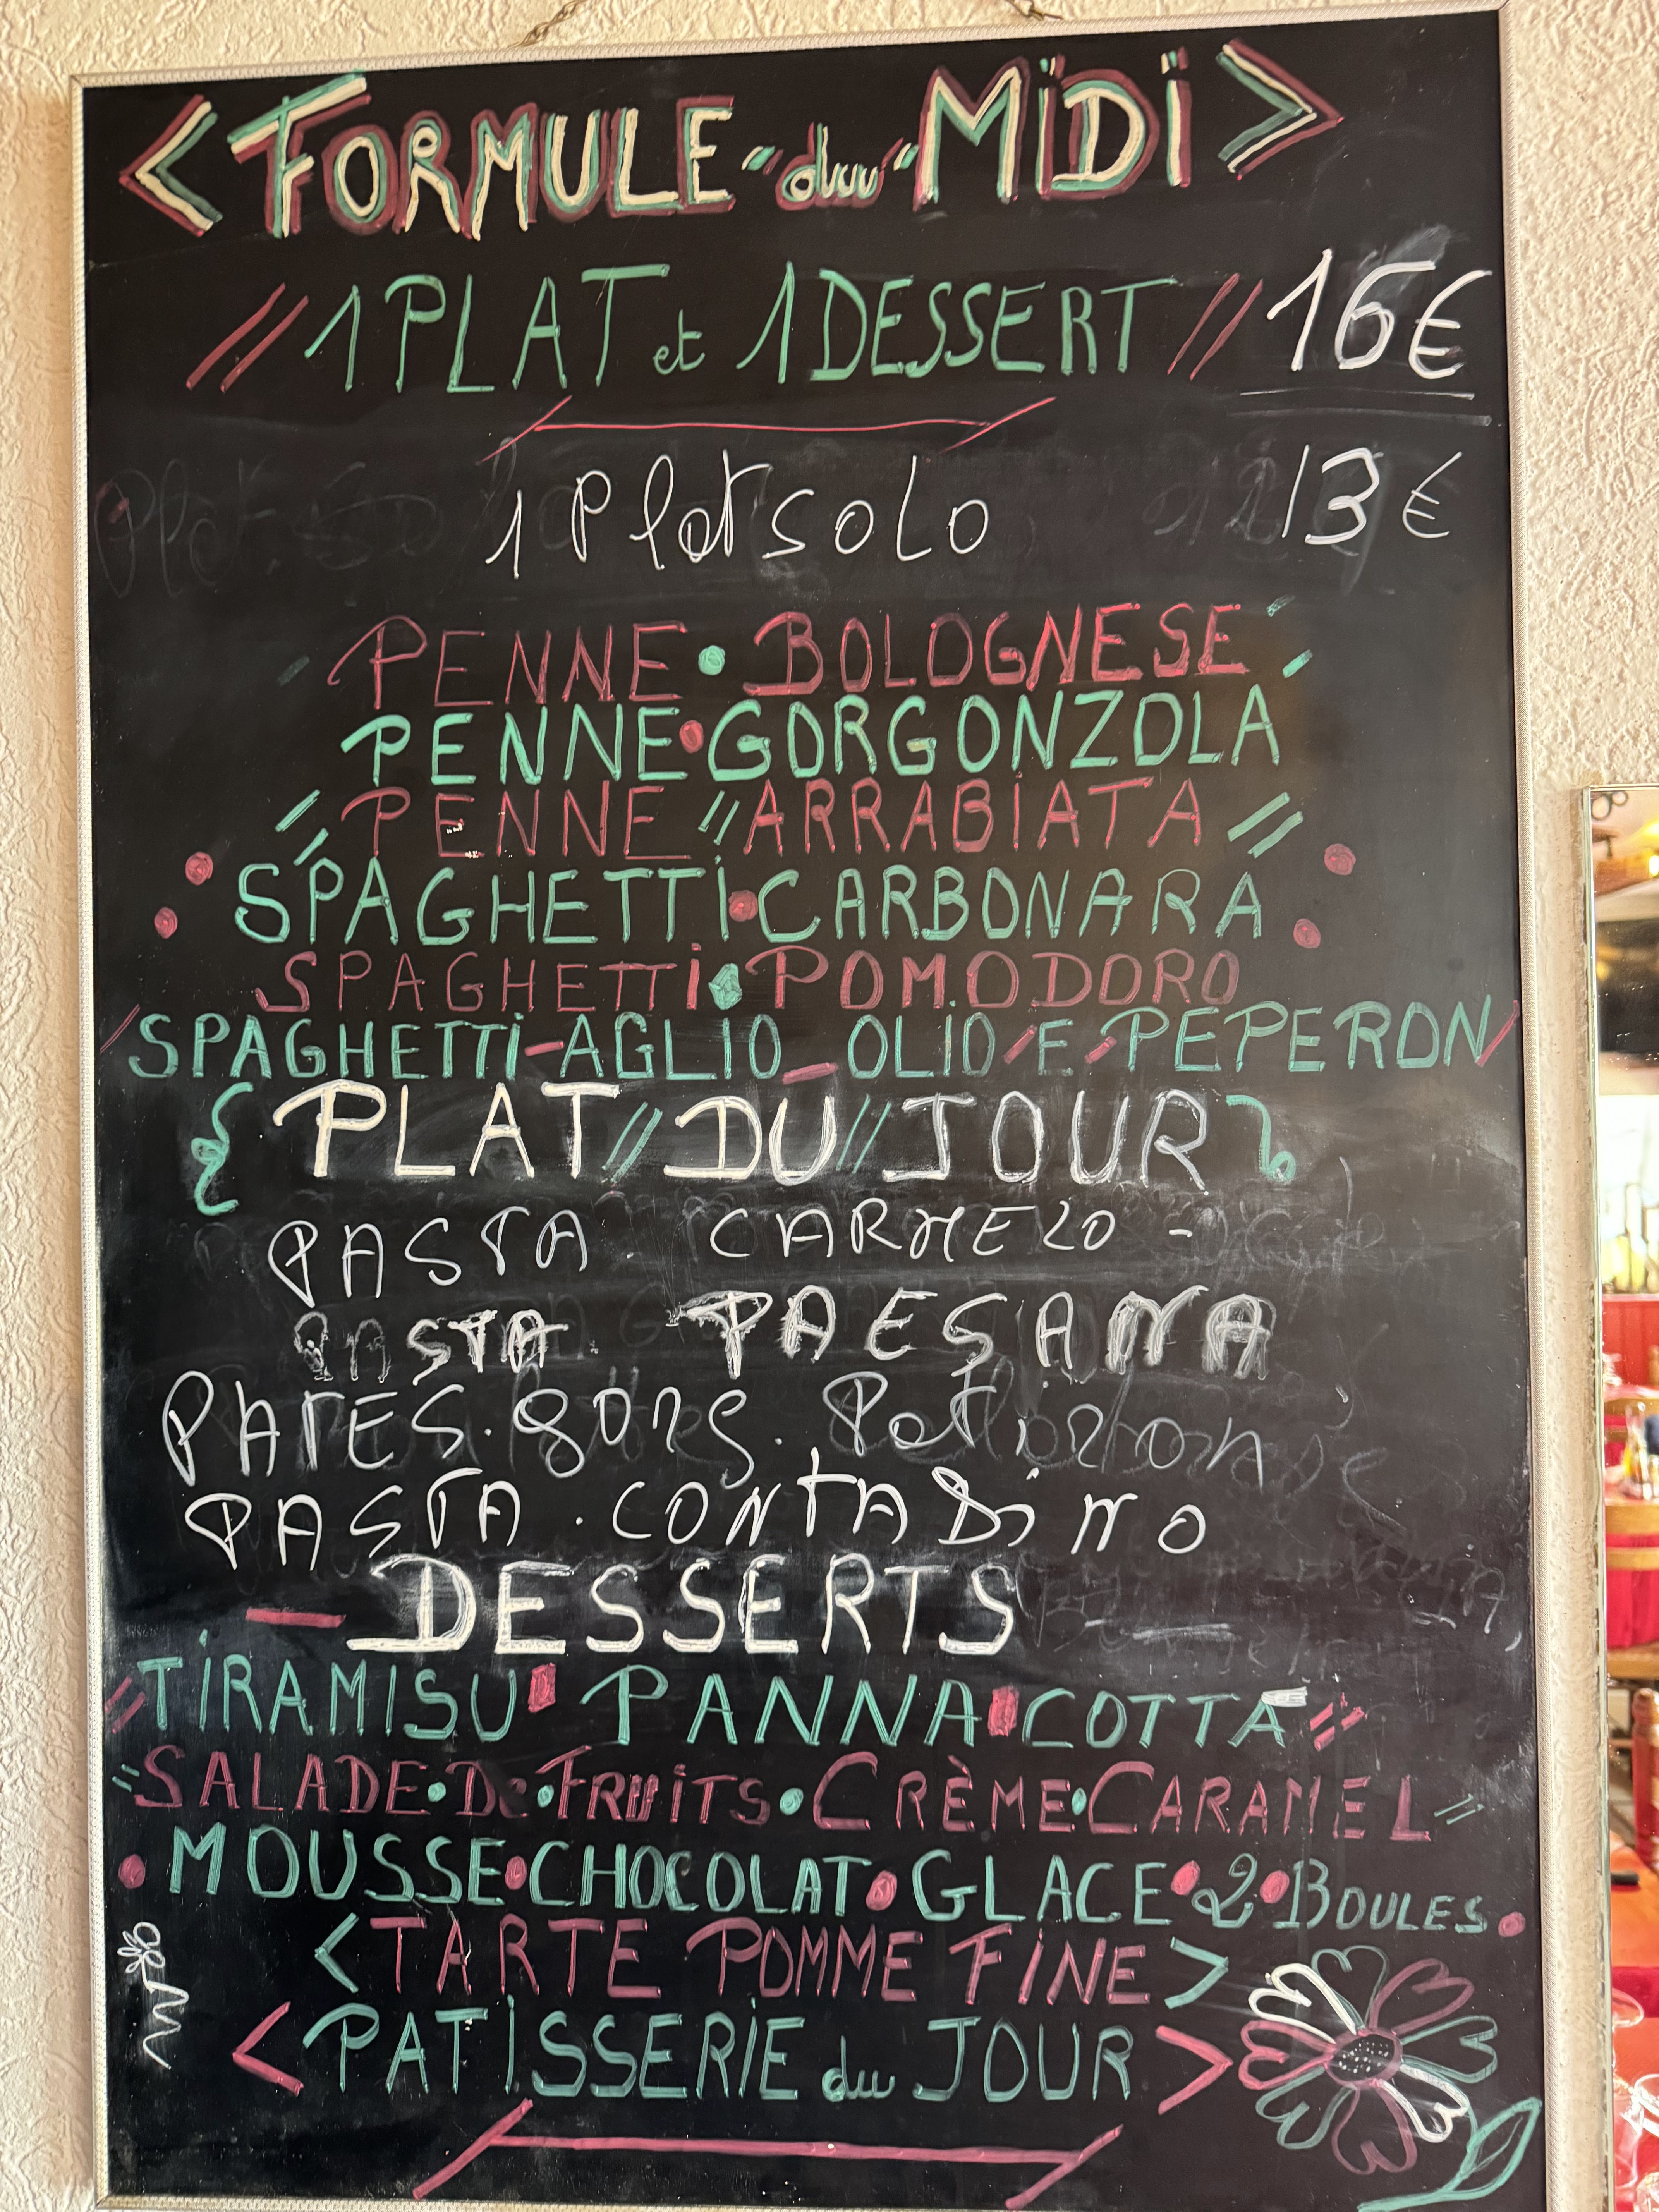 < FORMULE du MIDI >
// 1 PLAT et 1 DESSERT // 16€
1 Plat solo 13€
PENNE • BOLOGNESE
PENNE • GORGONZOLA
PENNE // ARRABIATA //
SPAGHETTI • CARBONARA
SPAGHETTI • POMODORO
SPAGHETTI - AGLIO - OLIO - E - PEPERON
{ PLAT // DU // JOUR
PASTA CARMELO -
PASTA PAESANA
PATES . gorg .
PASTA . CONTADINO
- DESSERTS -
TIRAMISU PANNA COTTA
SALADE • De • FRUITS • CRÈME • CARAMEL
• MOUSSE • CHOCOLAT • GLACE • 2 • BOULES •
< TARTE POMME FINE >
< PATISSERIE du JOUR >